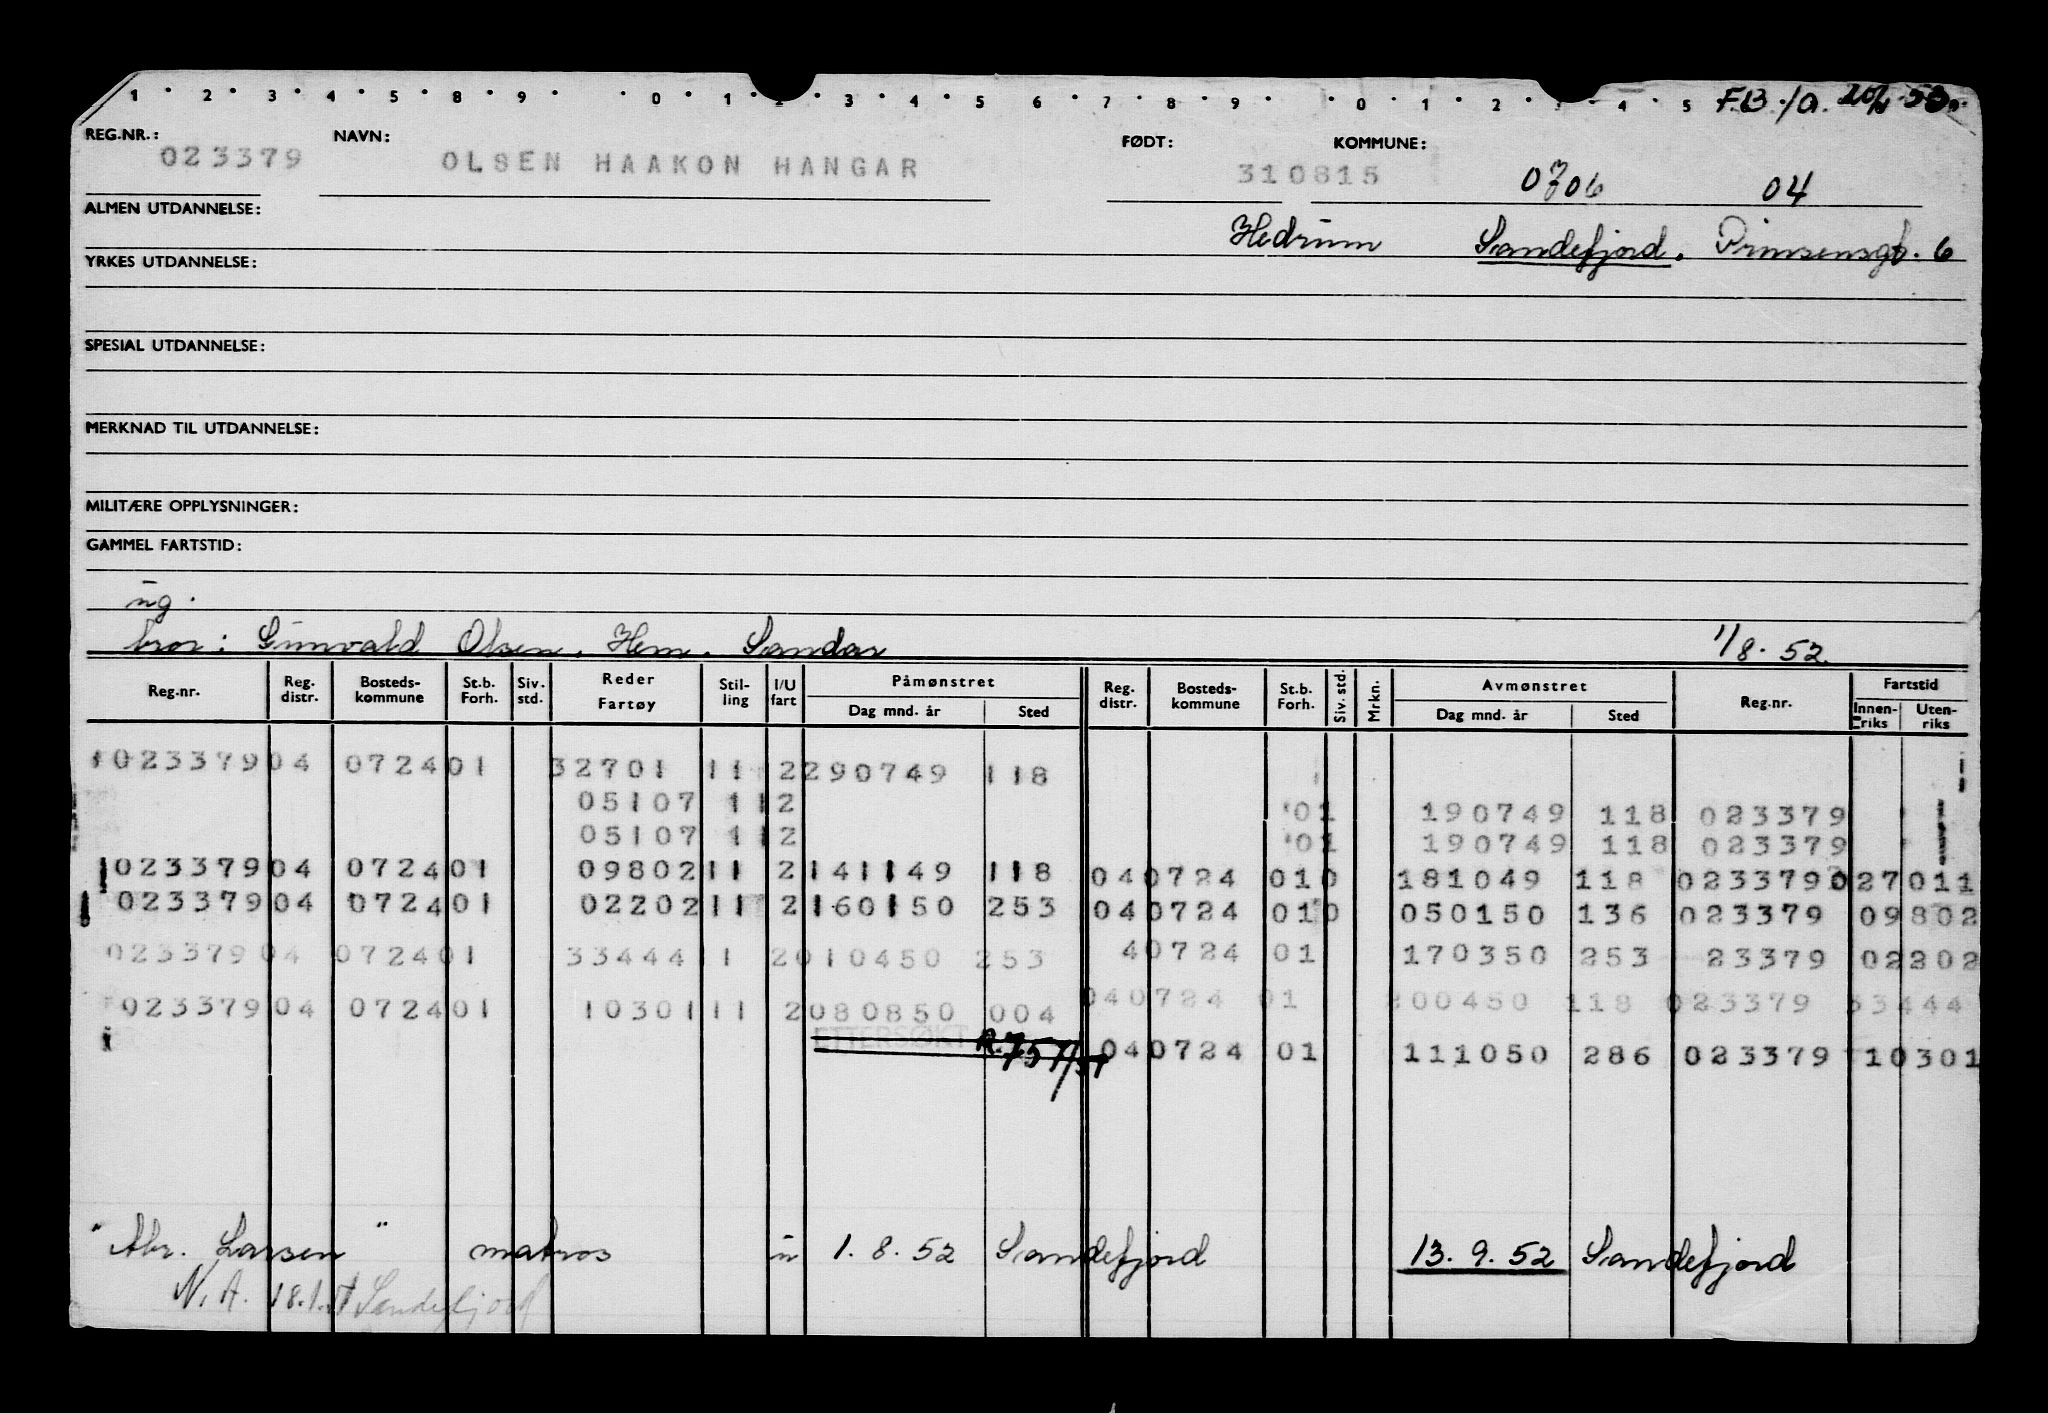 1 · 2 · 3 · 4 · 5 · 8 · 9 · · 0 · 1 · 2 · 3 · 4 · 5 · 6 · 7 · 8 · 9 · · 0 · 1 · 2 · 3 · 4 · 5 F.B./a.
REG.NR.: NAVN: FØDT: KOMMUNE:
023379 OLSEN HAAKON HANGAR 310815 0706 04
ALMEN UTDANNELSE:
Hedrum Sandefjord. Prinsensgt. 6
YRKES UTDANNELSE:
SPESIAL UTDANNELSE:
MERKNAD TIL UTDANNELSE:
MILITÆRE OPPLYSNINGER:
GAMMEL FARTSTID:
ug.
bror: Gunvald Olsen. Hem. Sandar 1/8. 52.
Reg.nr. Reg. distr. Bosteds-kommune St.b. Forh. Siv. std. Reder Fartøy Stil-ling I/U fart Påmønstret Dag mnd. år Sted Reg. distr. Bosteds-kommune St.b. Forh. Siv. std. Mrkn. Avmønstret Dag mnd. år Sted Reg.nr. Fartstid Innen-riks Uten-riks
023379 04 0724 01 32701 11 2 290749 118
05107 11 2 01 190749 118 023379
05107 11 2 01 190749 118 023379
023379 04 0724 01 09802 11 2 141149 118 04 0724 01 0 181049 118 023379 027011
023379 04 0724 01 02202 11 2 160150 253 04 0724 01 0 050150 136 023379 09802
023379 04 0724 01 33444 11 2 010450 253 4 0724 01 170350 253 23379 02202
023379 04 0724 01 10301 11 2 080850 004 04 0724 01 200450 118 023379 33444
ETTERSØKT 04 0724 01 111050 286 023379 10301
"Abr. Larsen" matros u 1. 8. 52 Sandefjord 13. 9. 52 Sandefjord
N.A. Sandefjord